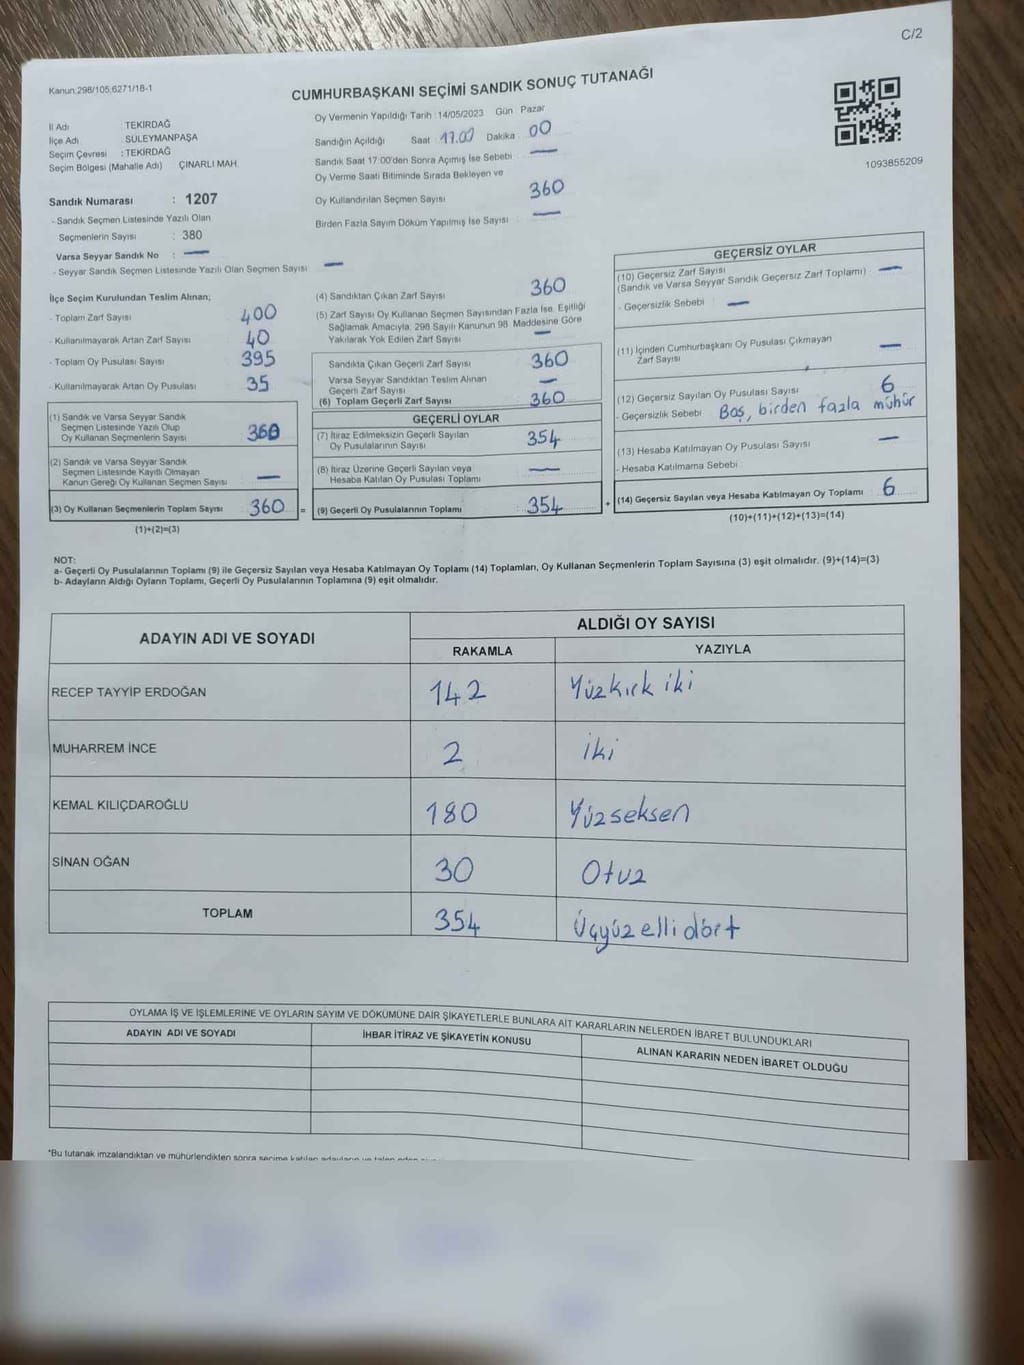 C/2
Kanun:298/105;6271/18-1
CUMHURBAŞKANI SEÇİMİ SANDIK SONUÇ TUTANAĞI
İl Adı : TEKİRDAĞ
İlçe Adı : SÜLEYMANPAŞA
Seçim Çevresi : TEKİRDAĞ
Seçim Bölgesi (Mahalle Adı) ÇINARLI MAH.
Sandık Numarası : 1207
- Sandık Seçmen Listesinde Yazılı Olan
Seçmenlerin Sayısı : 380
Varsa Seyyar Sandık No : —
- Seyyar Sandık Seçmen Listesinde Yazılı Olan Seçmen Sayısı —
Oy Vermenin Yapıldığı Tarih : 14/05/2023 Gün : Pazar
Sandığın Açıldığı Saat 17.00 Dakika 00
Sandık Saat 17:00'den Sonra Açımış İse Sebebi : —
Oy Verme Saati Bitiminde Sırada Bekleyen ve
Oy Kullandırılan Seçmen Sayısı 360
Birden Fazla Sayım Döküm Yapılmış İse Sayısı : —
1093855209
İlçe Seçim Kurulundan Teslim Alınan;
- Toplam Zarf Sayısı 400
- Kullanılmayarak Artan Zarf Sayısı 40
- Toplam Oy Pusulası Sayısı 395
- Kullanılmayarak Artan Oy Pusulası 35
(1) Sandık ve Varsa Seyyar Sandık
Seçmen Listesinde Yazılı Olup
Oy Kullanan Seçmenlerin Sayısı 360
(2) Sandık ve Varsa Seyyar Sandık
Seçmen Listesinde Kayıtlı Olmayan
Kanun Gereği Oy Kullanan Seçmen Sayısı : —
(3) Oy Kullanan Seçmenlerin Toplam Sayısı 360 =
(1)+(2)=(3)
(4) Sandıktan Çıkan Zarf Sayısı 360
(5) Zarf Sayısı Oy Kullanan Seçmen Sayısından Fazla İse, Eşitliği
Sağlamak Amacıyla, 298 Sayılı Kanunun 98. Maddesine Göre
Yakılarak Yok Edilen Zarf Sayısı —
Sandıkta Çıkan Geçerli Zarf Sayısı 360
Varsa Seyyar Sandıktan Teslim Alınan
Geçerli Zarf Sayısı —
(6) Toplam Geçerli Zarf Sayısı 360
GEÇERLİ OYLAR
(7) İtiraz Edilmeksizin Geçerli Sayılan
Oy Pusulalarının Sayısı 354
(8) İtiraz Üzerine Geçerli Sayılan veya
Hesaba Katılan Oy Pusulası Toplamı —
(9) Geçerli Oy Pusulalarının Toplamı 354 +
GEÇERSİZ OYLAR
(10) Geçersiz Zarf Sayısı —
(Sandık ve Varsa Seyyar Sandık Geçersiz Zarf Toplamı)
- Geçersizlik Sebebi : —
(11) İçinden Cumhurbaşkanı Oy Pusulası Çıkmayan
Zarf Sayısı —
(12) Geçersiz Sayılan Oy Pusulası Sayısı 6
- Geçersizlik Sebebi : Boş, birden fazla mühür
(13) Hesaba Katılmayan Oy Pusulası Sayısı —
- Hesaba Katılmama Sebebi
(14) Geçersiz Sayılan veya Hesaba Katılmayan Oy Toplamı 6
(10)+(11)+(12)+(13)=(14)
NOT:
a- Geçerli Oy Pusulalarının Toplamı (9) ile Geçersiz Sayılan veya Hesaba Katılmayan Oy Toplamı (14) Toplamları, Oy Kullanan Seçmenlerin Toplam Sayısına (3) eşit olmalıdır. (9)+(14)=(3)
b- Adayların Aldığı Oyların Toplamı, Geçerli Oy Pusulalarının Toplamına (9) eşit olmalıdır.
ADAYIN ADI VE SOYADI ALDIĞI OY SAYISI
RAKAMLA YAZIYLA
RECEP TAYYİP ERDOĞAN 142 Yüzkırk iki
MUHARREM İNCE 2 iki
KEMAL KILIÇDAROĞLU 180 Yüzseksen
SİNAN OĞAN 30 Otuz
TOPLAM 354 Üçyüz elli dört
OYLAMA İŞ VE İŞLEMLERİNE VE OYLARIN SAYIM VE DÖKÜMÜNE DAİR ŞİKAYETLERLE BUNLARA AİT KARARLARIN NELERDEN İBARET BULUNDUKLARI
ADAYIN ADI VE SOYADI İHBAR İTİRAZ VE ŞİKAYETİN KONUSU ALINAN KARARIN NEDEN İBARET OLDUĞU
*Bu tutanak imzalandıktan ve mühürlendikten sonra seçime katılan adayların ve talep eden